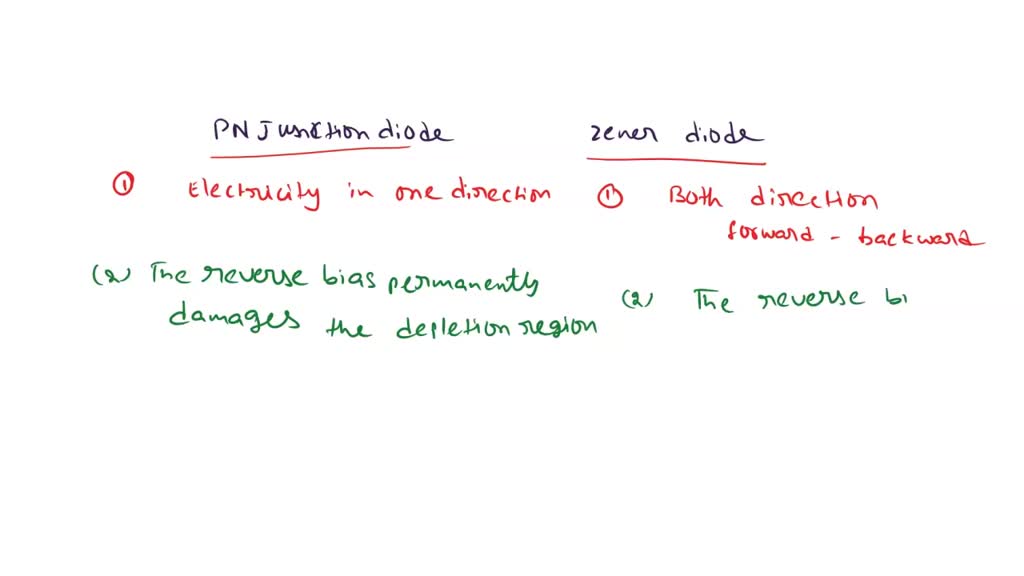 PN Junction diode
zener diode
① Electricity in one direction
① Both direction
forward - backward
(2) The reverse bias permanently
damages the depletion region
(2) The reverse bi